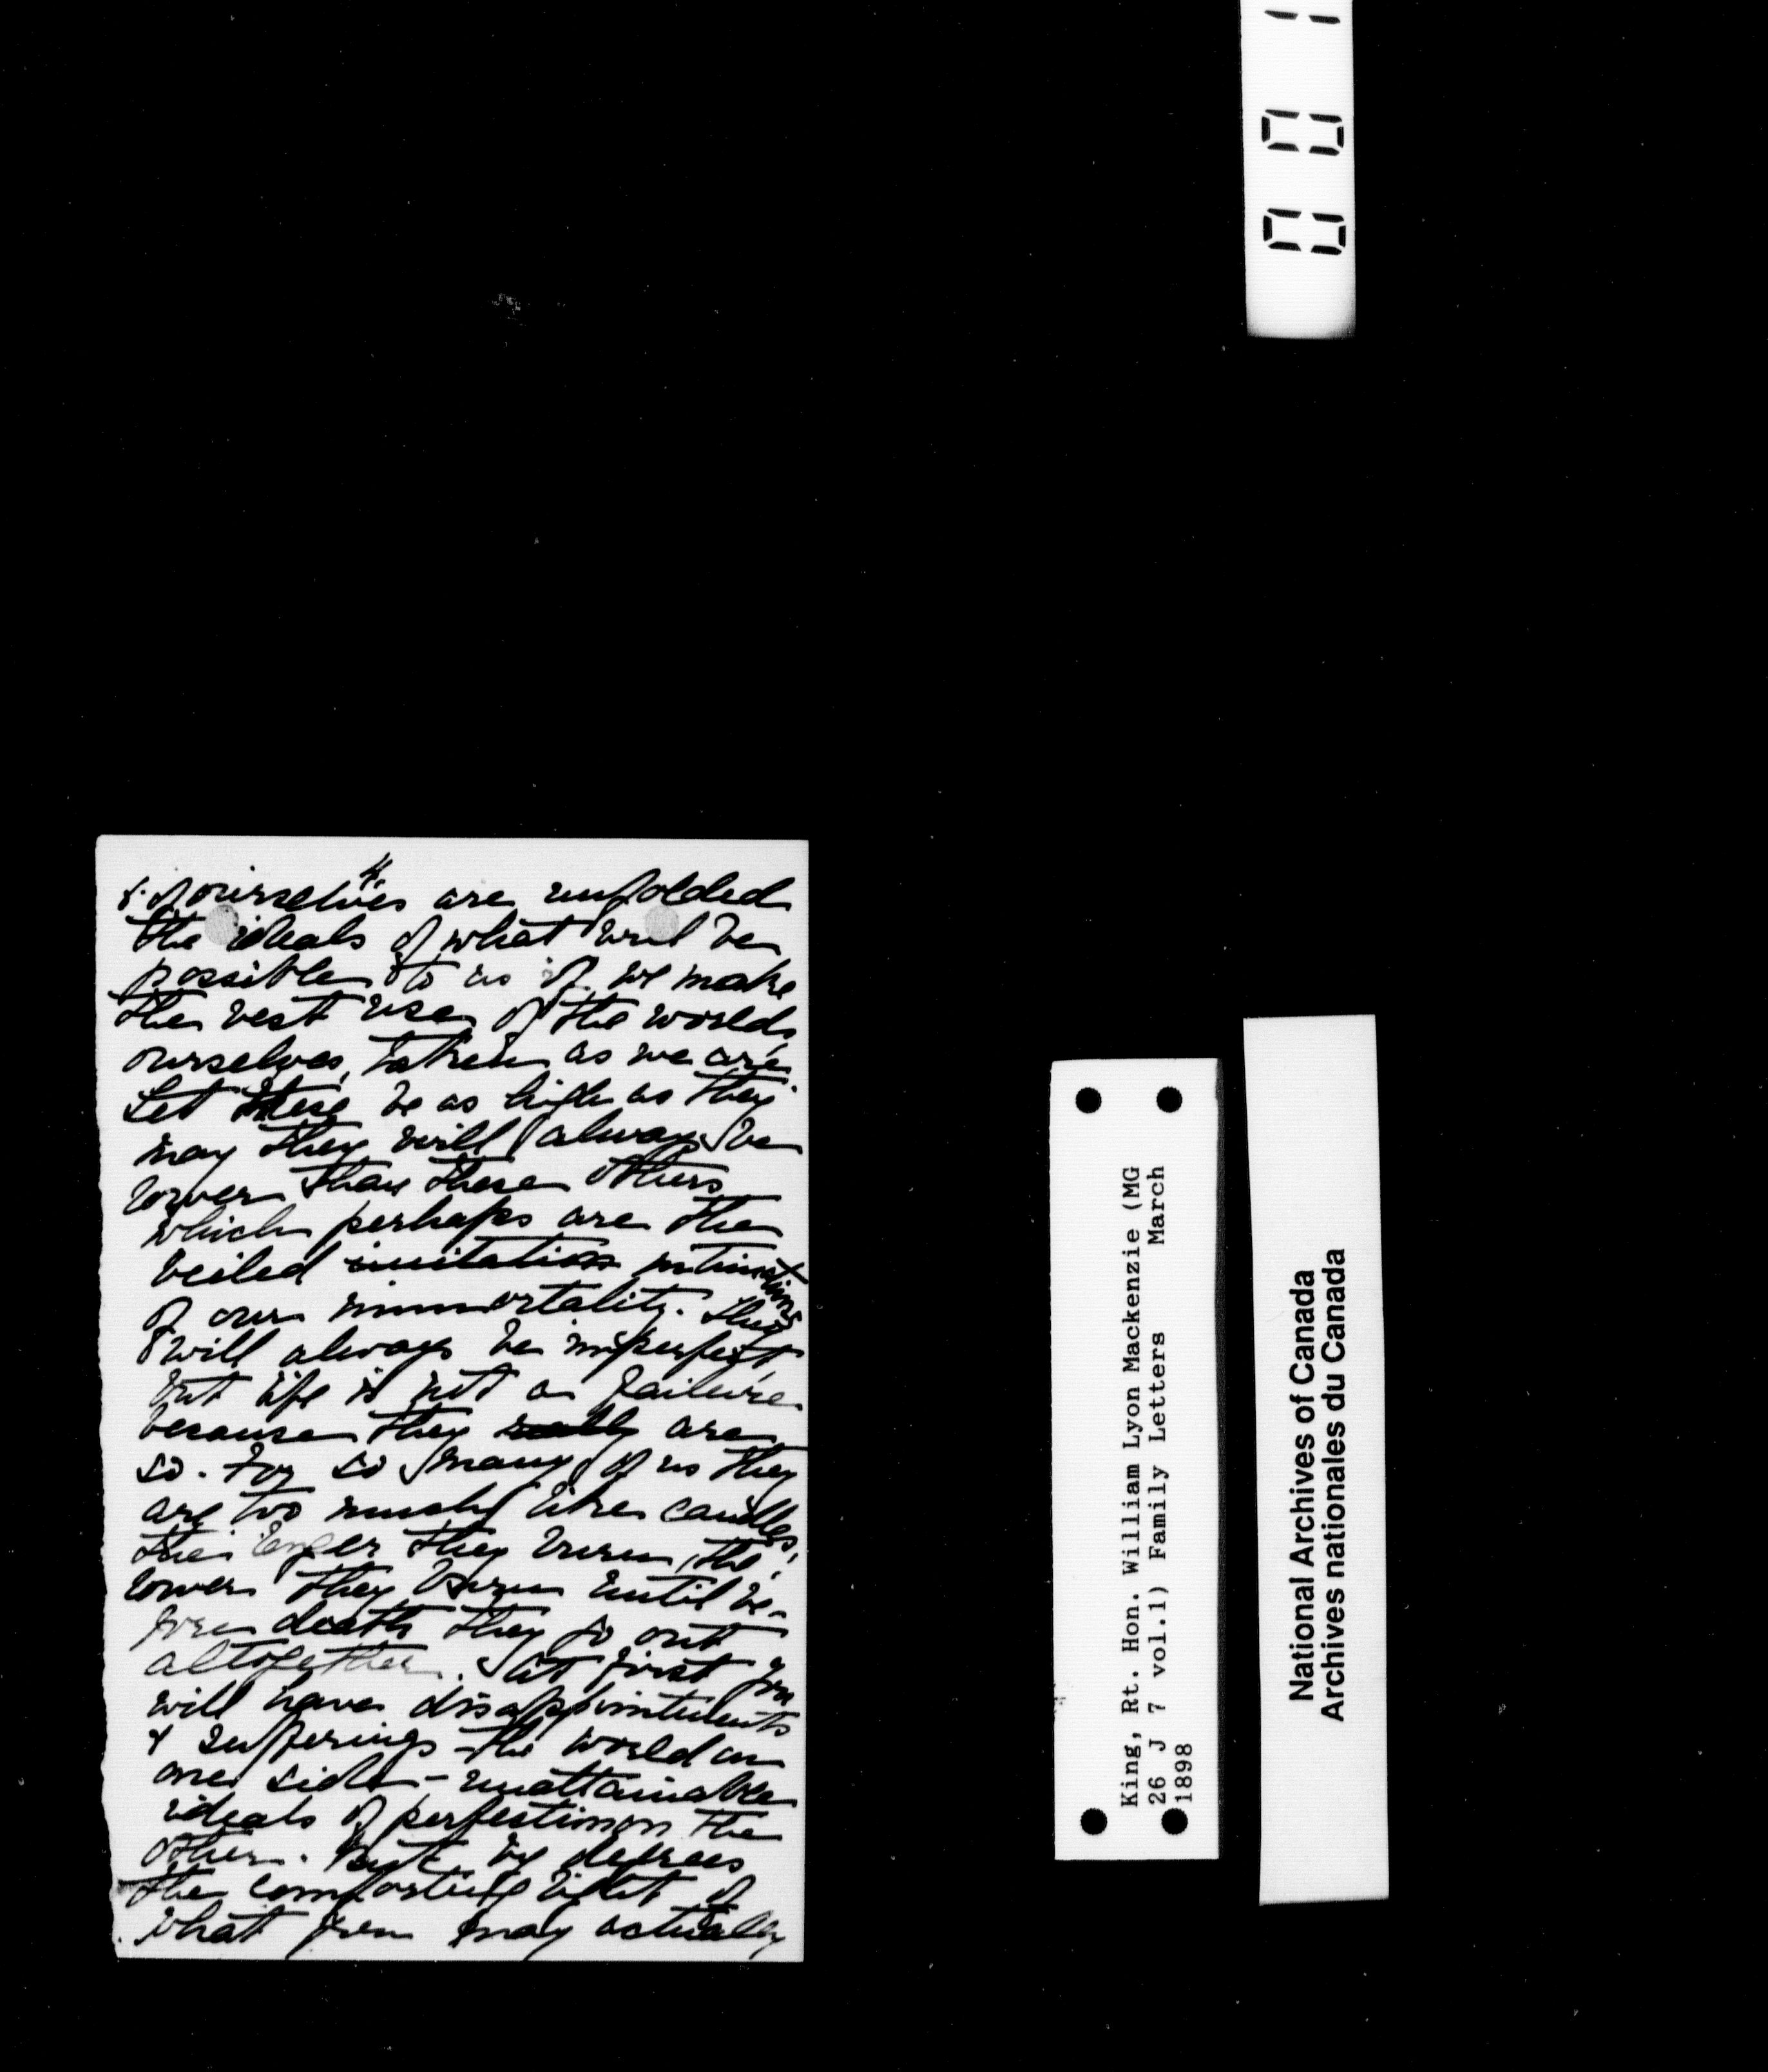 4
& of ourselves are unfolded
the ideals of what will be
possible to us if we make
the best use of the world &
ourselves, taken as we are.
Let these be as high as they
may they will always be
lower than these others
which perhaps are the
veiled imitation intimations
of our immortality. They
will always be imperfect
but life is not a failure
because they really are
so. For so many of us they
are too much like candles,
the longer they burn, the
lower they burn until be-
fore death they go out
altogether. At first you
will have disappointments
& sufferings - the world on
one side - unattainable
ideals of perfection on the
other. But by degrees
the comforting light of
what you may actually
King, Rt. Hon. William Lyon Mackenzie (MG
26 J 7 vol.1) Family Letters March
1898
National Archives of Canada
Archives nationales du Canada